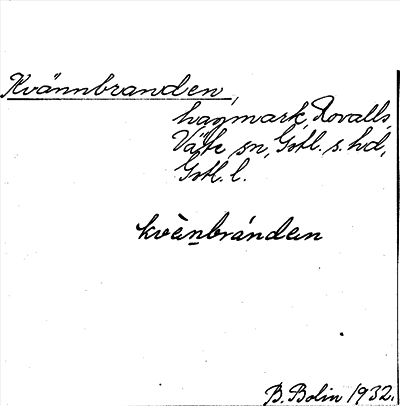 Kvännbranden,
hagmark, Rovalls,
Väte sn, Gotl. s. hd,
Gotl. l.
kvὲn̠bránden
B. Bolin 1932.